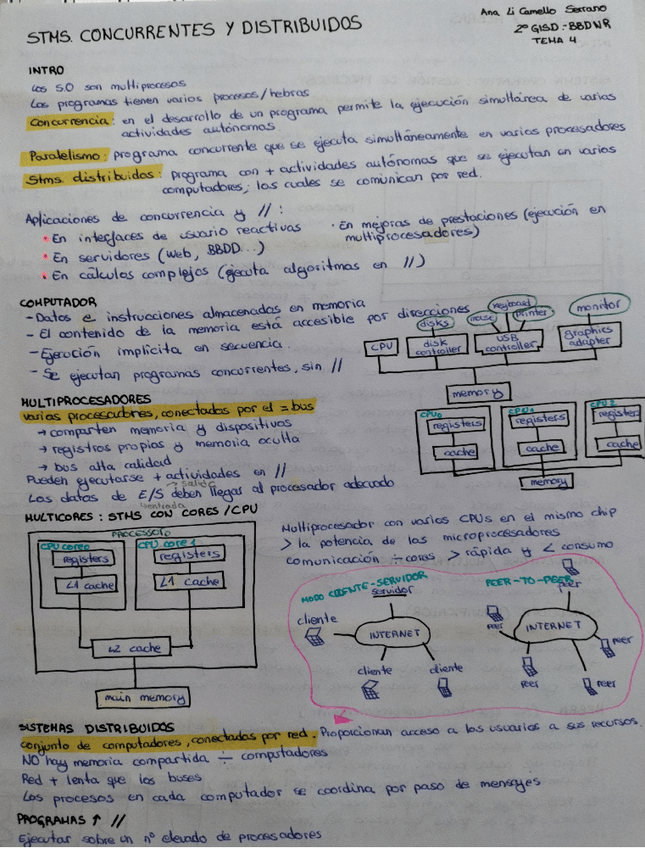 Ana Li Camello Serrano
STMS. CONCURRENTES Y DISTRIBUIDOS
2º GISD - BBDNR
TEMA 4
INTRO
Los S.O son multiprocesos
Los programas tienen varios procesos/hebras
Concurrencia: en el desarrollo de un programa permite la ejecución simultánea de varias
actividades autónomas
Paralelismo: programa concurrente que se ejecuta simultáneamente en varios procesadores
Stms. distribuidos: programa con + actividades autónomas que se ejecutan en varios
computadores, las cuales se comunican por red.
Aplicaciones de concurrencia y // :
• En interfaces de usuario reactivas
• En servidores (Web, BBDD...)
• En cálculos complejos (ejecuta algoritmos en //)
· En mejoras de prestaciones (ejecución en
multiprocesadores)
COMPUTADOR
- Datos e instrucciones almacenados en memoria
- El contenido de la memoria está accesible por direcciones
- Ejecución implícita en secuencia.
- Se ejecutan programas concurrentes, sin //
disks
mouse
keyboard
printer
monitor
CPU
disk controller
USB controller
graphics adapter
memory
MULTIPROCESADORES
varios procesadores, conectados por el = bus
→ comparten memoria y dispositivos
→ registros propios y memoria oculta
→ bus alta calidad
Pueden ejecutarse + actividades en //
Los datos de E/S deben llegar al procesador adecuado
salida
entrada
CPU0
CPU1
CPU2
registers
registers
registers
cache
cache
cache
memory
MULTICORES: STMS CON CORES/CPU
PROCESSOR0
CPU core0
CPU core1
registers
registers
L1 cache
L1 cache
L2 cache
main memory
Multiprocesador con varios CPUs en el mismo chip
> la potencia de los microprocesadores
comunicación ÷ cores > rápida y < consumo
MODO CLIENTE-SERVIDOR
servidor
cliente
INTERNET
cliente
cliente
PEER-TO-PEER
peer
peer
INTERNET
peer
peer
peer
SISTEMAS DISTRIBUIDOS
conjunto de computadores, conectados por red. Proporcionan acceso a los usuarios a sus recursos.
NO hay memoria compartida ÷ computadores
Red + lenta que los buses
Los procesos en cada computador se coordina por paso de mensajes
PROGRAMAS ↑ //
Ejecutar sobre un nº elevado de procesadores